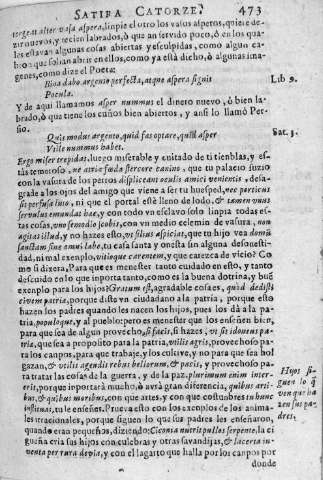 SATIRA CATORZE. 473
terget alter vasa aspera, limpie el otro los vasos asperos, quiere de-
zir nuevos, y recien labrados, ò que an servido poco, ò en los qua-
les estavan algunas cosas abiertas y esculpidas, como algun ca-
brio que solian abrir en ellos, como ya està dicho, ò algunas ima-
genes, como dize el Poeta:
Bina dabo argento perfecta, atque aspera signis
Pocula.
Lib 9.
Y de aqui llamamos asper nummus el dinero nuevo, ò bien la-
brado, ò que tiene los cuños bien abiertos, y ansi lo llamò Per-
sio.
Quis modus argento, quid fas optare, quid asper
Vtile nummus habet.
Sat. 3.
Ergo miser trepidas, luego miserable y cuitado de ti tienblas, y es-
tàs temeroso, ne atria fœda stercore canino, que tu palacio suzio
con la vasura de los perros displiceant oculis amici venientis, desa-
grade a los ojos del amigo que viene a ser tu huesped, nec porticus
sit perfusa luto, ni que el portal estè lleno de lodo, & tamen unus
servulus emundat hæc, y con todo vn esclavo solo linpia todas es-
tas cosas, uno semodio scobis, con vn medio celemin de vasura, non
agitas illud, y no hazes esto, vt filius aspiciat, que tu hijo vea domũ
sanctam sine omni labe, tu casa santa y onesta sin alguna desonesti-
dad, ni mal exenplo, vitioque carentem, y que carezca de vicio? Co
mo si dixera, Para que es menester tanto cuidado en esto, y tanto
descuido en lo que inporta tanto, como es la buena dotrina, y buẽ
exenplo para los hijos? Gratum est, agradable cosa es, quòd dedisti
civem patriæ, porque diste vn ciudadano a la patria, porque esto
hazen los padres quando les nacen los hijos, pues los dà a la pa-
tria, populoque, y al pueblo: pero es menester que los enseñen bien,
para que sea de algun provecho, si facis, si hazes, vt sit idoneus pa-
triæ, que sea a proposito para la patria, vtilis agris, provechoso pa-
ra los canpos, para que trabaje, y los cultive, y no para que sea hol
gazan, & vtilis agendis rebus bellorum, & pacis, y provechoso pa-
ra tratar las cosas de la guerra, y de la paz. plurimum enim inter-
erit, porque inportarà mucho, ò avrà gran diferencia, quibus arti-
bus, & quibus moribus, con que artes, y con que costunbres tu hunc
instituas, tu le enseñes. Prueva esto con los exenplos de los anima-
les irracionales, porque siguen lo que sus padres les enseñaron,
quando eran pequeños, diziendo: Ciconia nutrit pullos serpente, la ci
gueña cria sus hijos con culebras y otras savandijas, & lacerta in-
venta per rura devia, y con el lagarto que halla por los canpos por
donde
Hijos si-
guen lo q̃
ven que ha
zen sus pa-
dres.